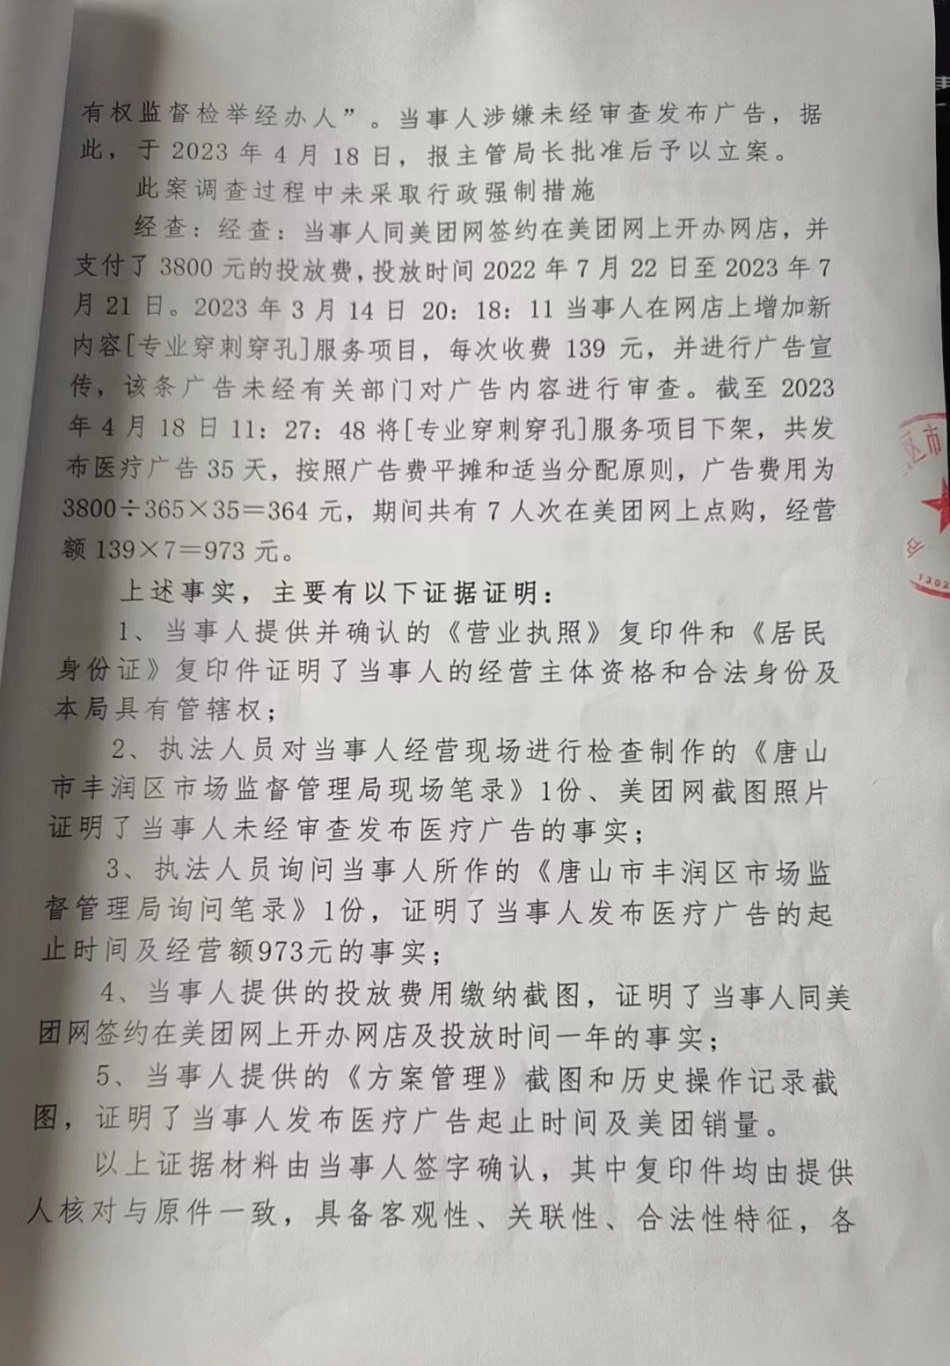 有权监督检举经办人”。当事人涉嫌未经审查发布广告，据
此，于 2023 年 4 月 18 日，报主管局长批准后予以立案。
此案调查过程中未采取行政强制措施
经查：经查：当事人同美团网签约在美团网上开办网店，并
支付了 3800 元的投放费，投放时间 2022 年 7 月 22 日至 2023 年 7
月 21 日。2023 年 3 月 14 日 20：18：11 当事人在网店上增加新
内容[专业穿刺穿孔]服务项目，每次收费 139 元，并进行广告宣
传，该条广告未经有关部门对广告内容进行审查。截至 2023
年 4 月 18 日 11：27：48 将[专业穿刺穿孔]服务项目下架，共发
布医疗广告 35 天，按照广告费平摊和适当分配原则，广告费用为
3800÷365×35＝364 元，期间共有 7 人次在美团网上点购，经营
额 139×7＝973 元。
上述事实，主要有以下证据证明：
1、当事人提供并确认的《营业执照》复印件和《居民
身份证》复印件证明了当事人的经营主体资格和合法身份及
本局具有管辖权；
2、执法人员对当事人经营现场进行检查制作的《唐山
市丰润区市场监督管理局现场笔录》1份、美团网截图照片
证明了当事人未经审查发布医疗广告的事实；
3、执法人员询问当事人所作的《唐山市丰润区市场监
督管理局询问笔录》1份，证明了当事人发布医疗广告的起
止时间及经营额973元的事实；
4、当事人提供的投放费用缴纳截图，证明了当事人同美
团网签约在美团网上开办网店及投放时间一年的事实；
5、当事人提供的《方案管理》截图和历史操作记录截
图，证明了当事人发布医疗广告起止时间及美团销量。
以上证据材料由当事人签字确认，其中复印件均由提供
人核对与原件一致，具备客观性、关联性、合法性特征，各
区市
1302